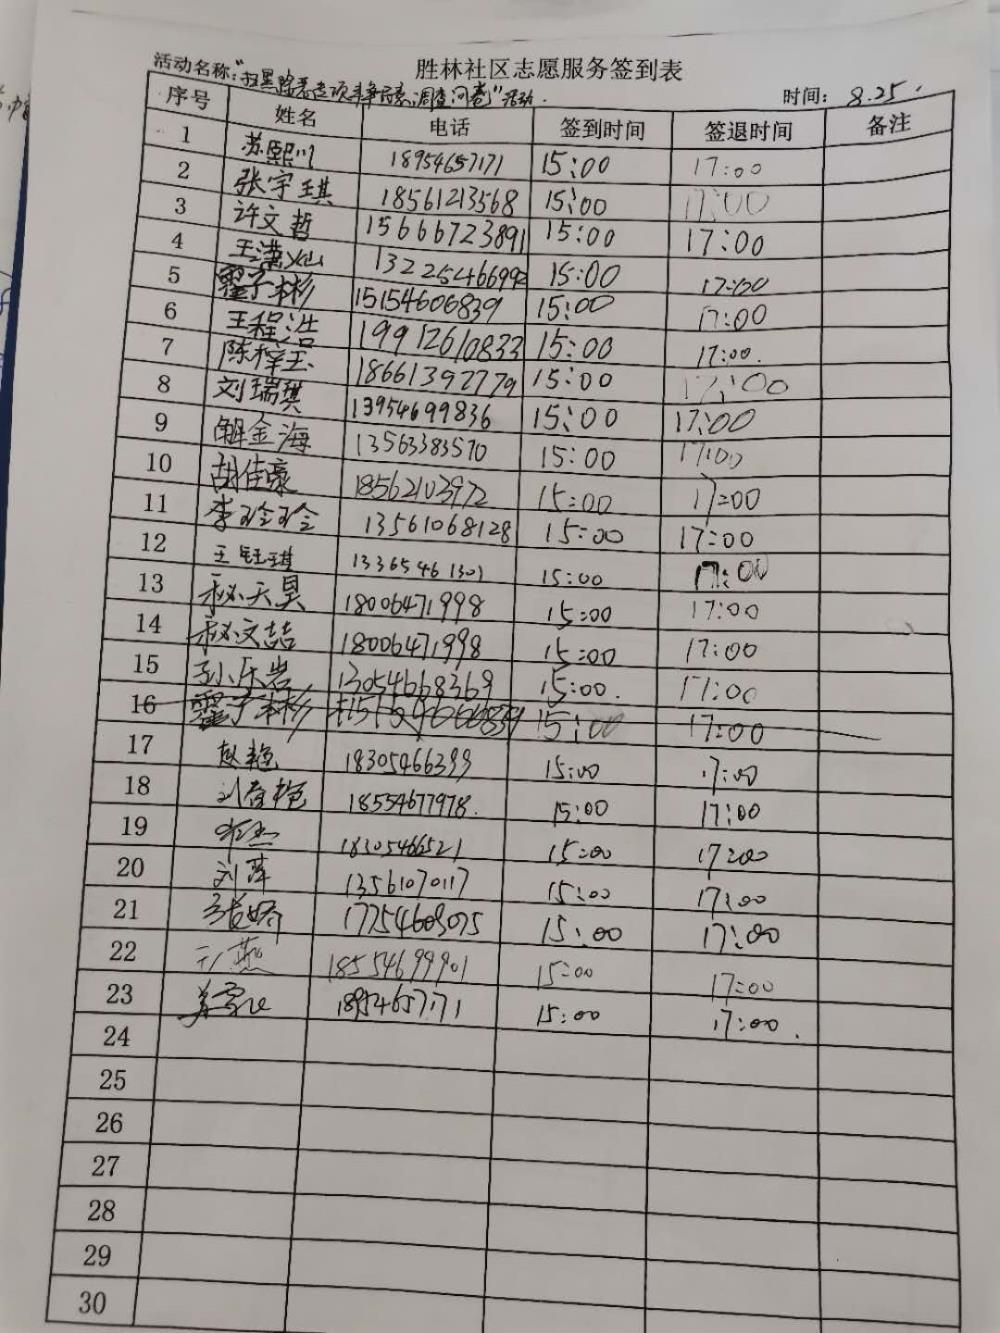 胜林社区志愿服务签到表
活动名称："扫黑除恶专项斗争线索调查问卷"活动. 时间：8.25.
序号 姓名 电话 签到时间 签退时间 备注
1 苏熙 18954657171 15:00 17:00
2 张宇琪 18561213568 15:00 17:00
3 许文哲 15666723891 15:00 17:00
4 王潇灿 13225466992 15:00 17:00
5 霍子彬 15154606839 15:00 17:00
6 王程浩 19912610833 15:00 17:00.
7 陈梓玉 18661392779 15:00 17:00
8 刘瑞琪 13954699836 15:00 17:00
9 解金海 13563383570 15:00 17:00
10 胡佳豪 18562103972 15:00 17:00
11 李玲玲 13561068128 15:00 17:00
12 王钰琪 13365461301 15:00 17:00
13 秘天昊 18006471998 15:00 17:00
14 秘文喆 18006471998 15:00 17:00
15 孙乐岩 13054668369 15:00. 17:00
16 霍子彬 15154606839 15:00 17:00
17 赵艳 18305466399 15:00 17:00
18 刘春艳 18554677978. 15:00 17:00
19 18305466521 15:00 17:00
20 刘萍 13561070117 15:00 17:00
21 张娇 17754603075 15:00 17:00
22 燕 18554699901 15:00 17:00
23 18954657171 15:00 17:00.
24
25
26
27
28
29
30